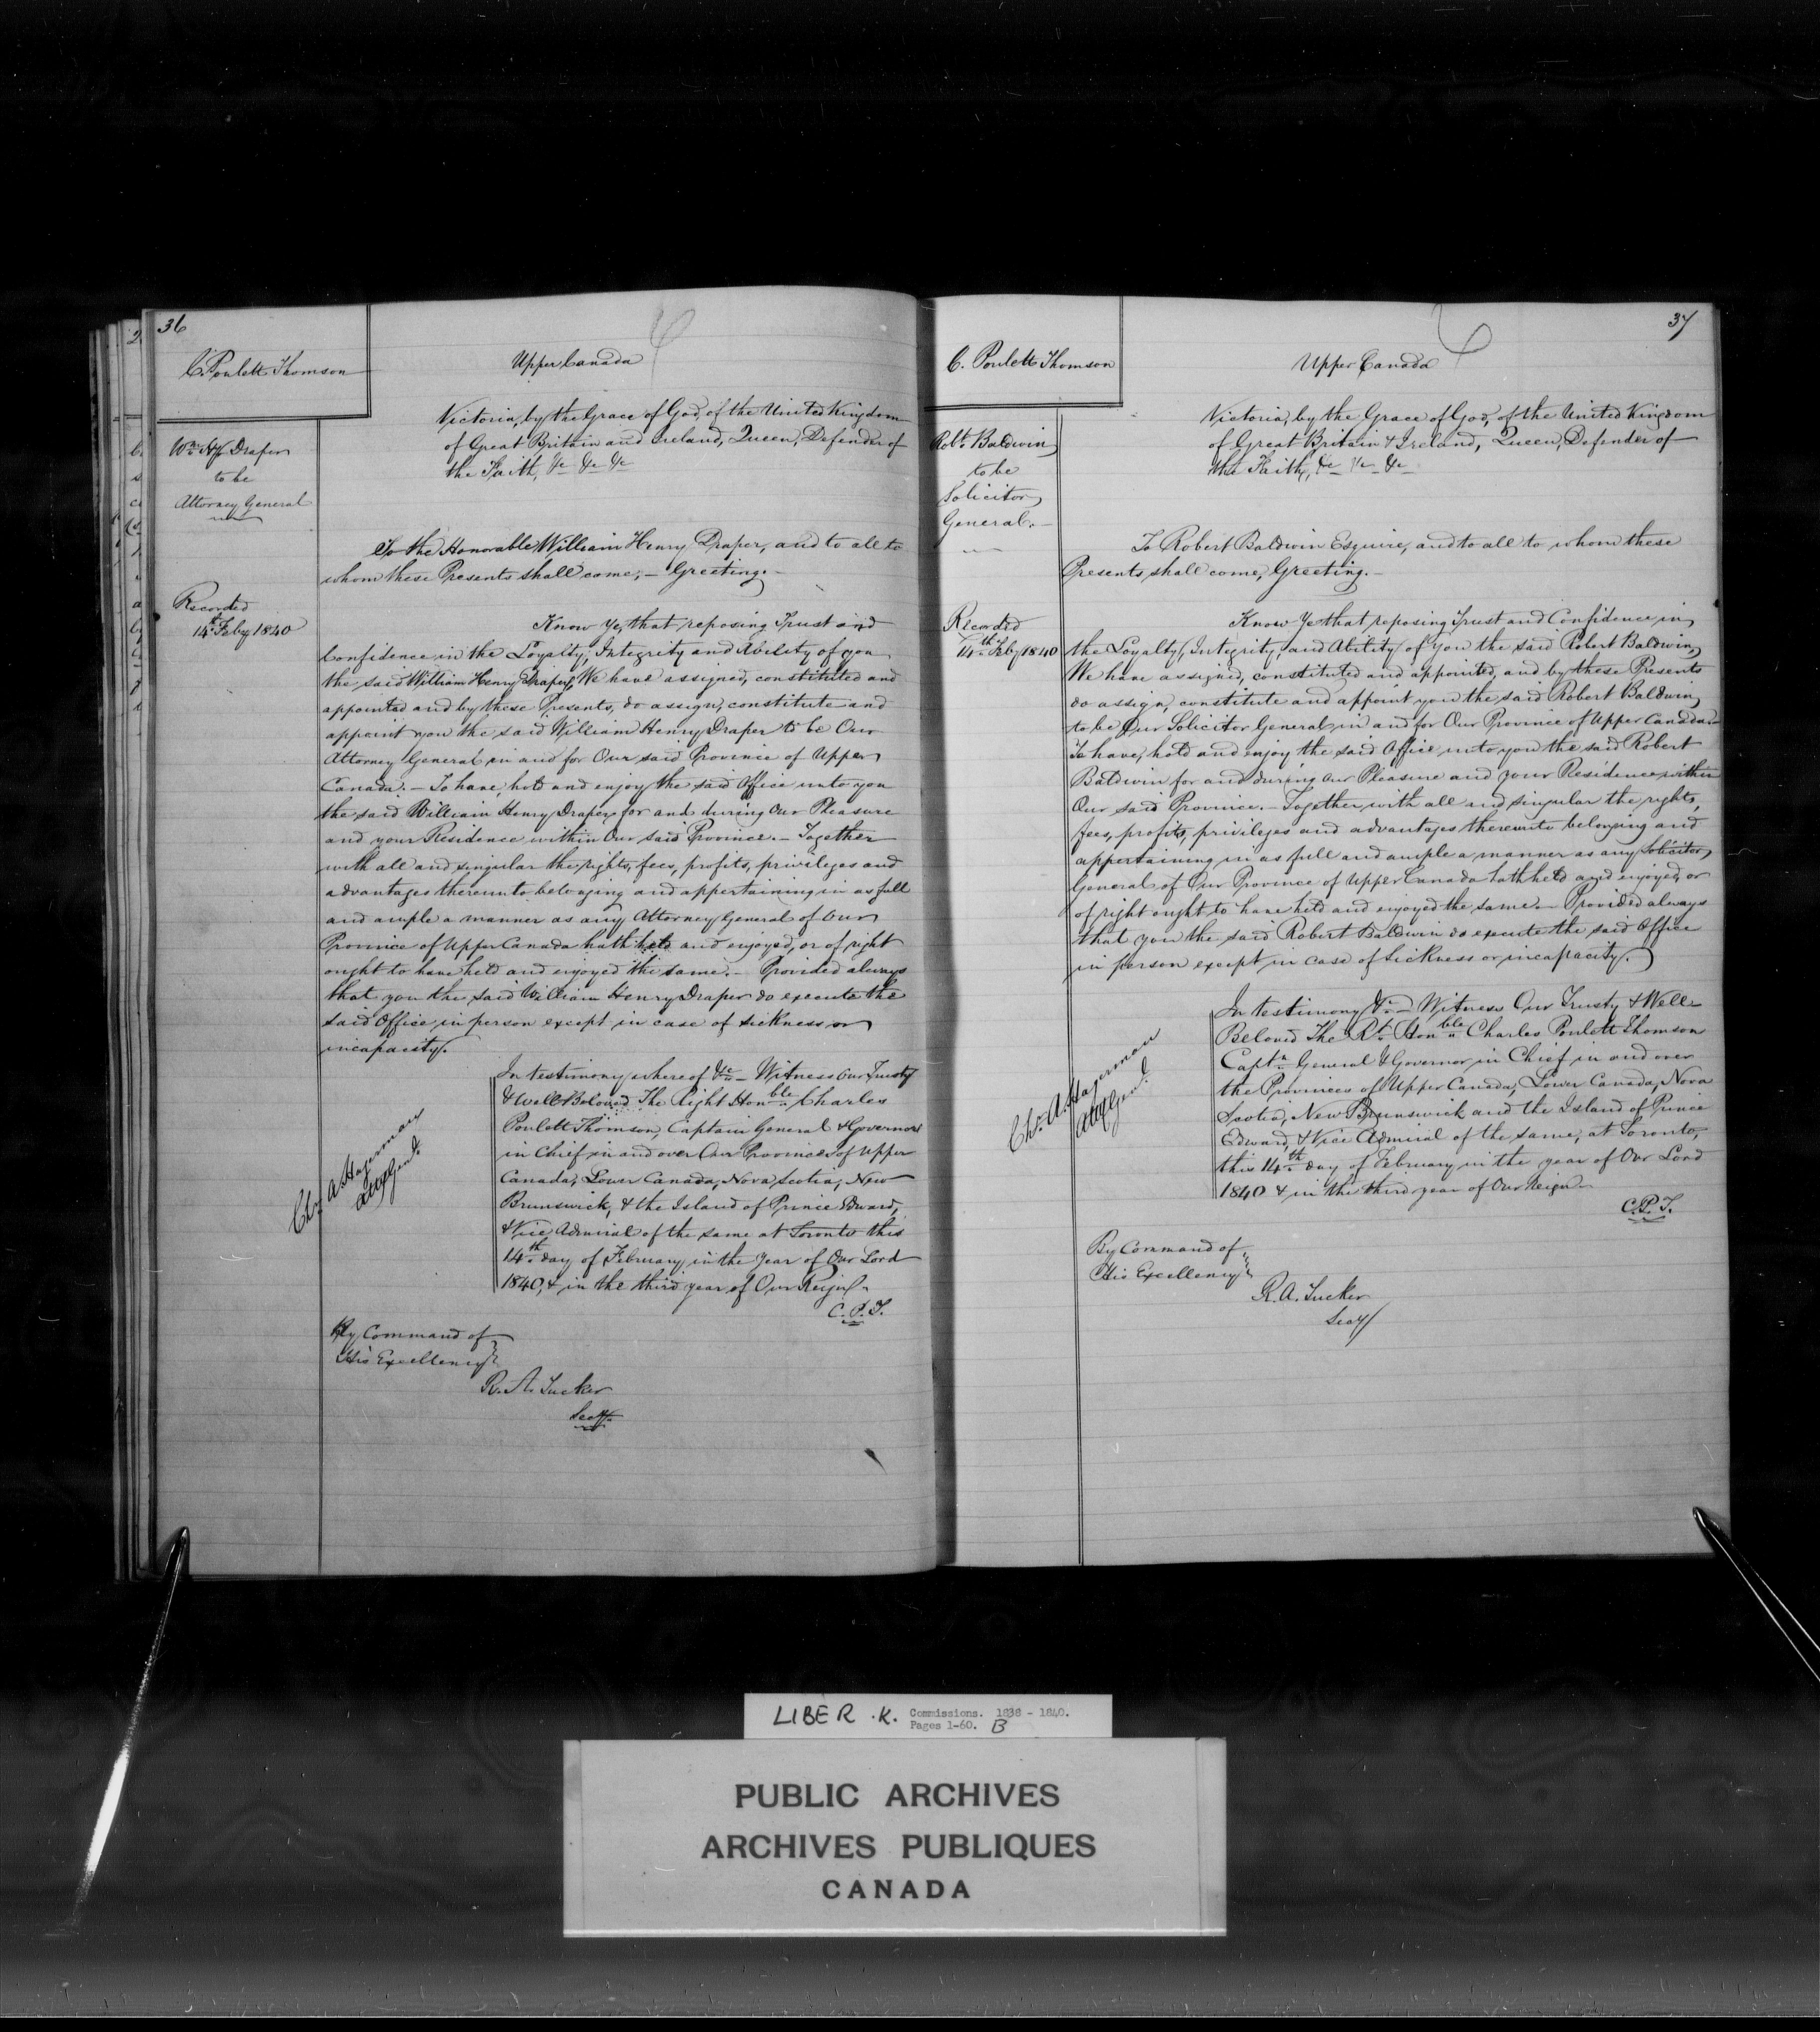 36
C. Poulett Thomson
Upper Canada
Victoria, by the Grace of God, of the United Kingdom
of Great Britain and Ireland, Queen, Defender of
the Faith, &c &c &c
Wm. Hy. Draper
to be
Attorney General
To the Honorable William Henry Draper, and to all to
whom these Presents shall come, – Greeting. –
Recorded
14th Feby 1840
Know Ye, that reposing Trust and
Confidence in the Loyalty, Integrity and Ability of you
the said William Henry Draper, We have assigned, constituted and
appointed and by these Presents, do assign, constitute and
appoint you the said William Henry Draper to be Our
Attorney General in and for Our said Province of Upper
Canada. – To have, hold and enjoy the said Office unto you
the said William Henry Draper for and during Our Pleasure
and your Residence within Our said Province. – Together
with all and singular the rights, fees, profits, privileges and
advantages thereunto belonging and appertaining in as full
and ample a manner as any Attorney General of Our
Province of Upper Canada hath held and enjoyed, or of right
ought to have held and enjoyed the same. – Provided always
that you the said William Henry Draper do execute the
said Office in person except in case of sickness or
incapacity.
In testimony whereof &c – Witness Our Trusty
& Well Beloved The Right Honble Charles
Poulett Thomson, Captain General & Governor
in Chief in and over Our Provinces of Upper
Canada, Lower Canada, Nova Scotia, New
Brunswick, & the Island of Prince Edward,
& Vice Admiral of the same at Toronto this
14th day of February in the year of Our Lord
1840, & in the third year of Our Reign.
C. P. T.
Chr. A Hagerman
Atty Genl.
By Command of
His Excellency
R. A. Tucker
Secy.
37
C. Poulett Thomson
Upper Canada
Victoria, by the Grace of God, of the United Kingdom
of Great Britain & Ireland, Queen, Defender of
the Faith, &c &c &c
Robt. Baldwin
to be
Solicitor
General. –
To Robert Baldwin Esquire, and to all to whom these
Presents shall come, Greeting. –
Recorded
14th Feby 1840
Know Ye that reposing Trust and Confidence in
the Loyalty, Integrity, and Ability of you the said Robert Baldwin,
We have assigned, constituted and appointed, and by these Presents
do assign, constitute and appoint you the said Robert Baldwin
to be Our Solicitor General in and for Our Province of Upper Canada. –
To have, hold and enjoy the said Office unto you the said Robert
Baldwin for and during Our Pleasure and your Residence within
Our said Province. – Together with all and singular the rights,
fees, profits, privileges and advantages thereunto belonging and
appertaining in as full and ample a manner as any Solicitor
General of Our Province of Upper Canada hath held and enjoyed, or
of right ought to have held and enjoyed the same. – Provided always
that you the said Robert Baldwin do execute the said Office
in person except in case of sickness or incapacity.
In testimony &c – Witness Our Trusty & Well
Beloved The Rt. Honble Charles Poulett Thomson
Captn General & Governor in Chief in and over
the Provinces of Upper Canada, Lower Canada, Nova
Scotia, New Brunswick and the Island of Prince
Edward, & Vice Admiral of the same, at Toronto,
this 14th day of February in the year of Our Lord
1840 & in the third year of Our Reign
C. P. T.
Chr. A. Hagerman
Atty Genl.
By Command of
His Excellency
R. A. Tucker
Secy
LIBER .K. Commissions. 1838 - 1840.
Pages 1-60. B
PUBLIC ARCHIVES
ARCHIVES PUBLIQUES
CANADA